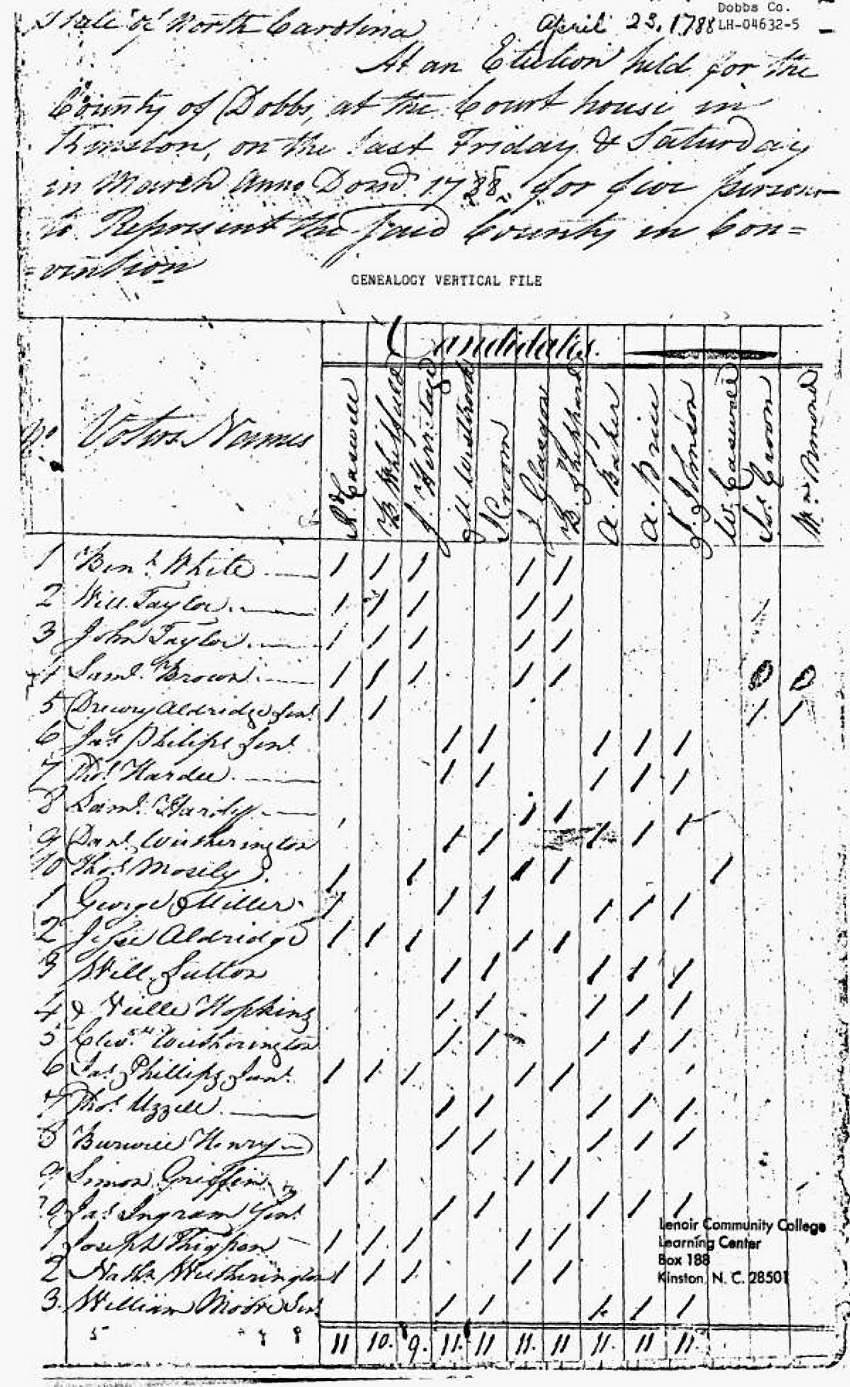 Dobbs Co.
State of North Carolina April 23, 1788 LH-04632-5
At an Election held for the
County of Dobbs, at the Court house in
Kinston, on the last Friday & Saturday
in March Anno Domd. 1788 for five persons
to Represent the said County in Con=
=vention
GENEALOGY VERTICAL FILE
Candidates.
No Voters Names
Rd. Caswell
B Whitfield
J. Herritage
M Westbrook
J Croom
J. Glasgow
B. Sheppard
A. Baker
A. Price
J. Johnson
W. Caswell
Croom
1 Benj. White
2 Will Taylor
3 John Taylor
4 Saml. Brown
5 Drewry Aldridge Senr.
6 Jas Philips Senr
7 Thos. Hardee
8 Saml. Hardy
9 Danl. Witherington
10 Thos. Mosely
1 George Miller
2 Jesse Aldridge
3 Will Sutton
4 Hopkins
5 Witherington
6 Jas. Phillips Junr.
7 Thos Uzzell
8 Henry
9 Simon Griffin
20 Jas. Ingram Senr.
1 Joseph Thigpen
2 Nathl Witherington
3. William Moore Senr
Lenoir Community College
Learning Center
Box 188
Kinston, N. C. 28501
11 10. 9. 11. 11 11. 11 11. 11 11.